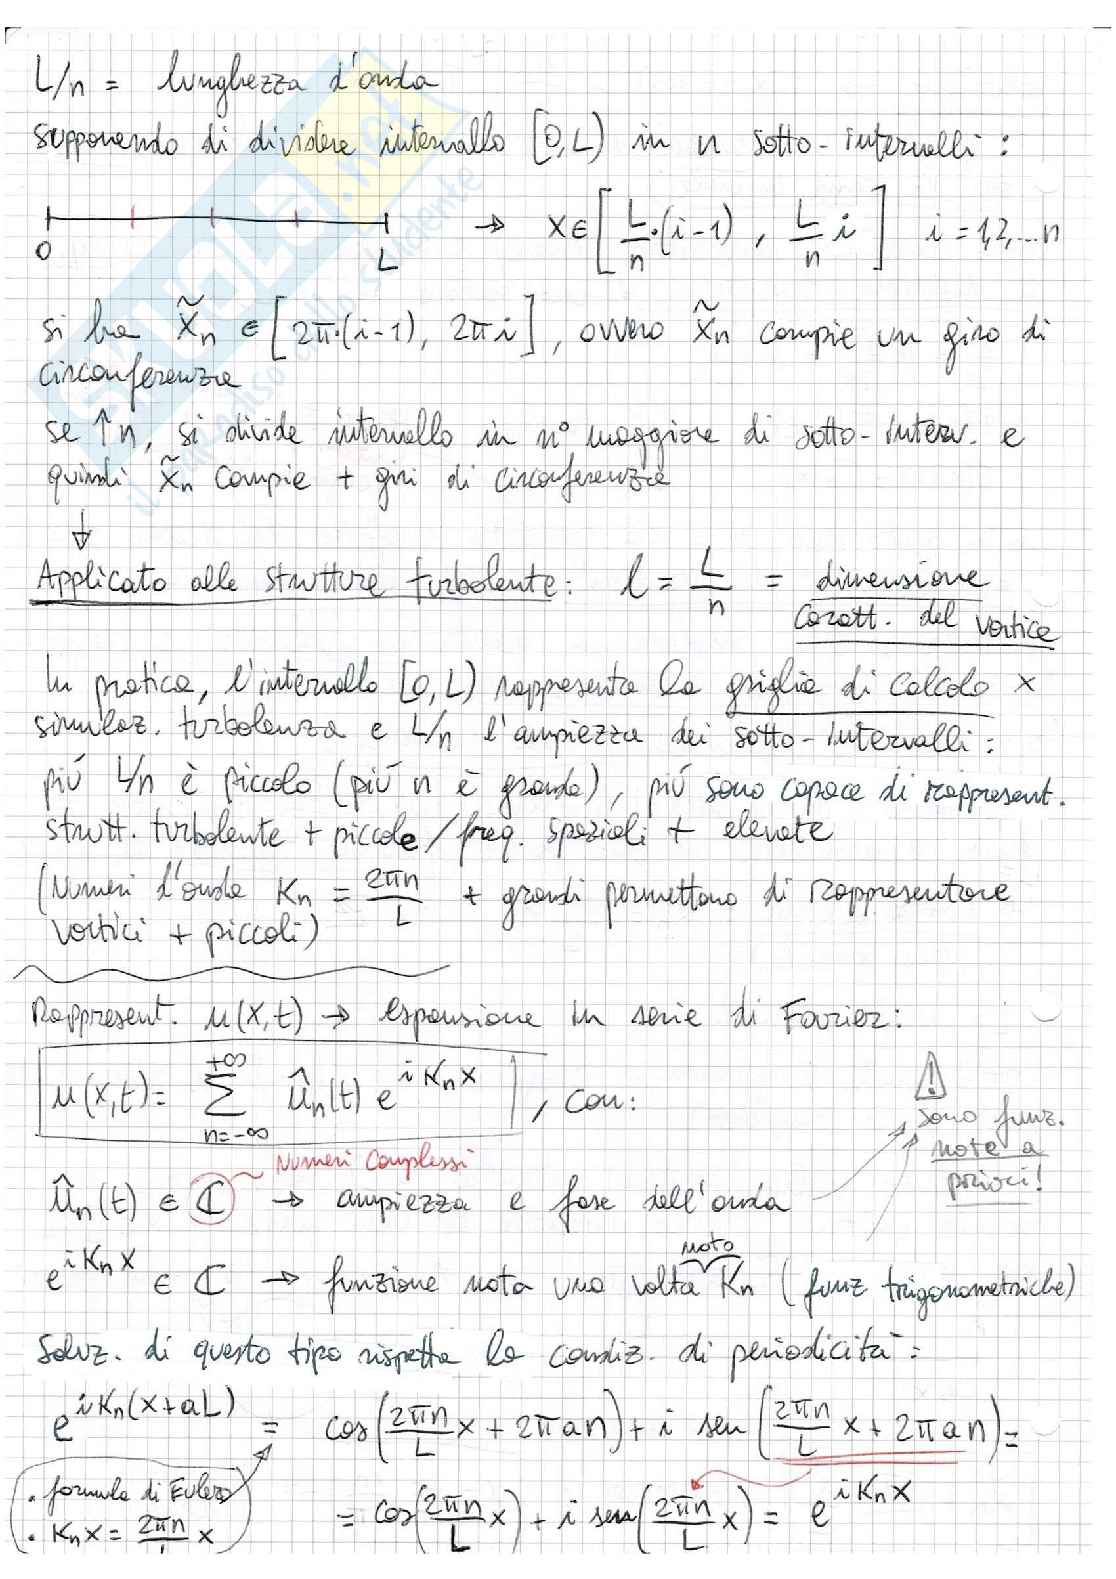 L/n = lunghezza d'onda
supponendo di dividere intervallo [0,L) in n sotto-intervalli:
0 L → x∈[L/n·(i-1), L/n i] i=1,2,...n
si ha x̃n ∈[2π·(i-1), 2πi], ovvero x̃n compie un giro di
circonferenza
se ↑n, si divide intervallo in n° maggiore di sotto-interv. e
quindi x̃n compie + giri di circonferenza
↓
Applicato alle strutture turbolente: l = L/n = dimensione
caratt. del vortice
In pratica, l'intervallo [0,L) rappresenta la griglia di calcolo x
simulaz. turbolenza e L/n l'ampiezza dei sotto-intervalli:
più L/n è piccolo (più n è grande), più sono capace di rappresent.
strutt. turbolente + piccole/freq. spaziali + elevate
(Numeri d'onda Kn = 2πn/L + grandi permettono di rappresentare
vortici + piccoli)
Rappresent. u(x,t) → espansione in serie di Fourier:
u(x,t)= +∞ Σ n=-∞ ûn(t) e^iKnx, con:
⚠ sono funz.
note a
priori!
Numeri Complessi
ûn(t) ∈ ℂ → ampiezza e fase dell'onda
noto
e^iKnx ∈ ℂ → funzione nota una volta Kn (funz trigonometriche)
Soluz. di questo tipo rispetta la condiz. di periodicità:
e^iKn(x+aL) = cos(2πn/L x + 2πan) + i sen(2πn/L x + 2πan)=
. formula di Eulero
. Knx = 2πn/L x
= cos(2πn/L x) + i sen(2πn/L x) = e^iKnx
SKUOLA.net
il paradiso dello studente